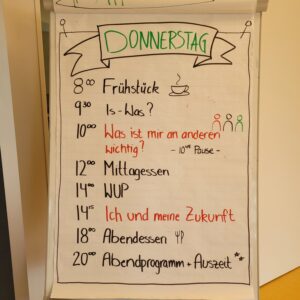 DONNERSTAG
8⁰⁰ Frühstück
9³⁰ Is-Was?
10⁰⁰ Was ist mir an anderen
wichtig? - 10er Pause -
12⁰⁰ Mittagessen
14⁰⁰ WUP
14¹⁵ Ich und meine Zukunft
18⁰⁰ Abendessen
20⁰⁰ Abendprogramm + Auszeit